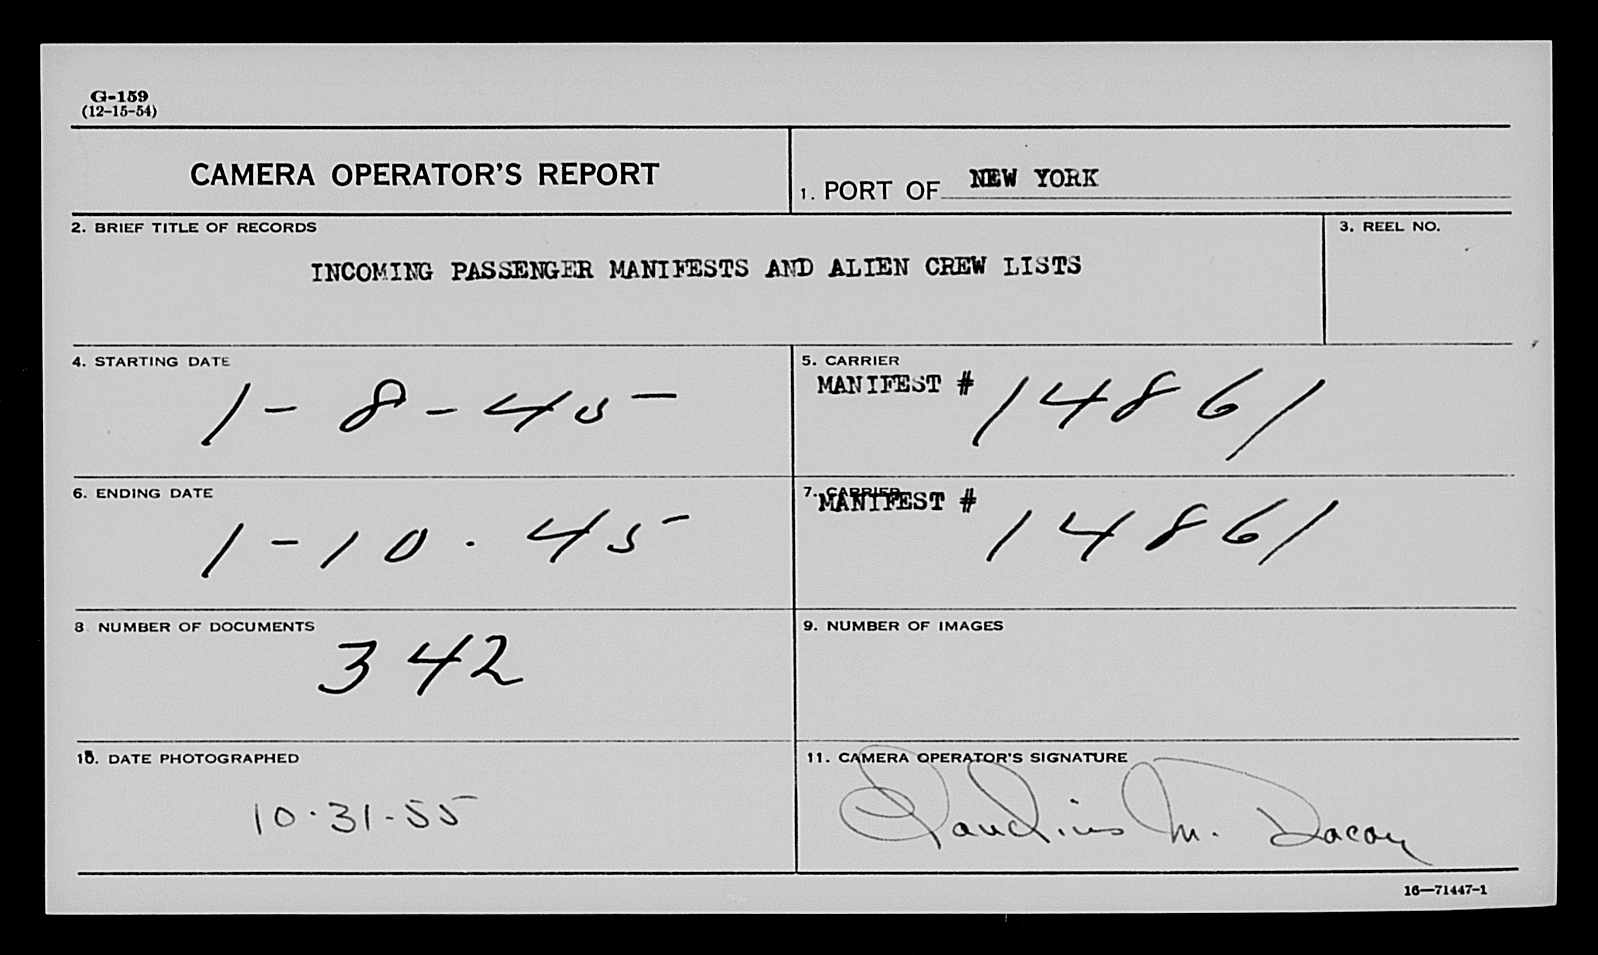 G-159
(12-15-54)
CAMERA OPERATOR'S REPORT
1. PORT OF NEW YORK
2. BRIEF TITLE OF RECORDS
INCOMING PASSENGER MANIFESTS AND ALIEN CREW LISTS
3. REEL NO.
4. STARTING DATE
1-8-45
5. CARRIER
MANIFEST # 14861
6. ENDING DATE
1-10-45
7. CARRIER
MANIFEST # 14861
8 NUMBER OF DOCUMENTS
342
9. NUMBER OF IMAGES
10. DATE PHOTOGRAPHED
10-31-55
11. CAMERA OPERATOR'S SIGNATURE
Claudius M.
16—71447-1